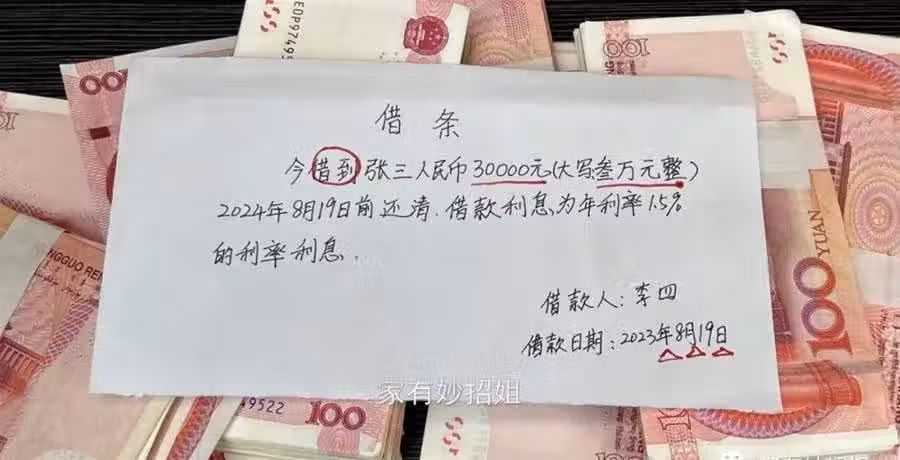 借条
今借到张三人民币30000元(大写叁万元整)
2024年8月19日前还清.借款利息为年利率1.5%
的利率利息.
借款人:李四
借款日期:2023年8月19日
家有妙招姐
100
100
100
100
YUAN